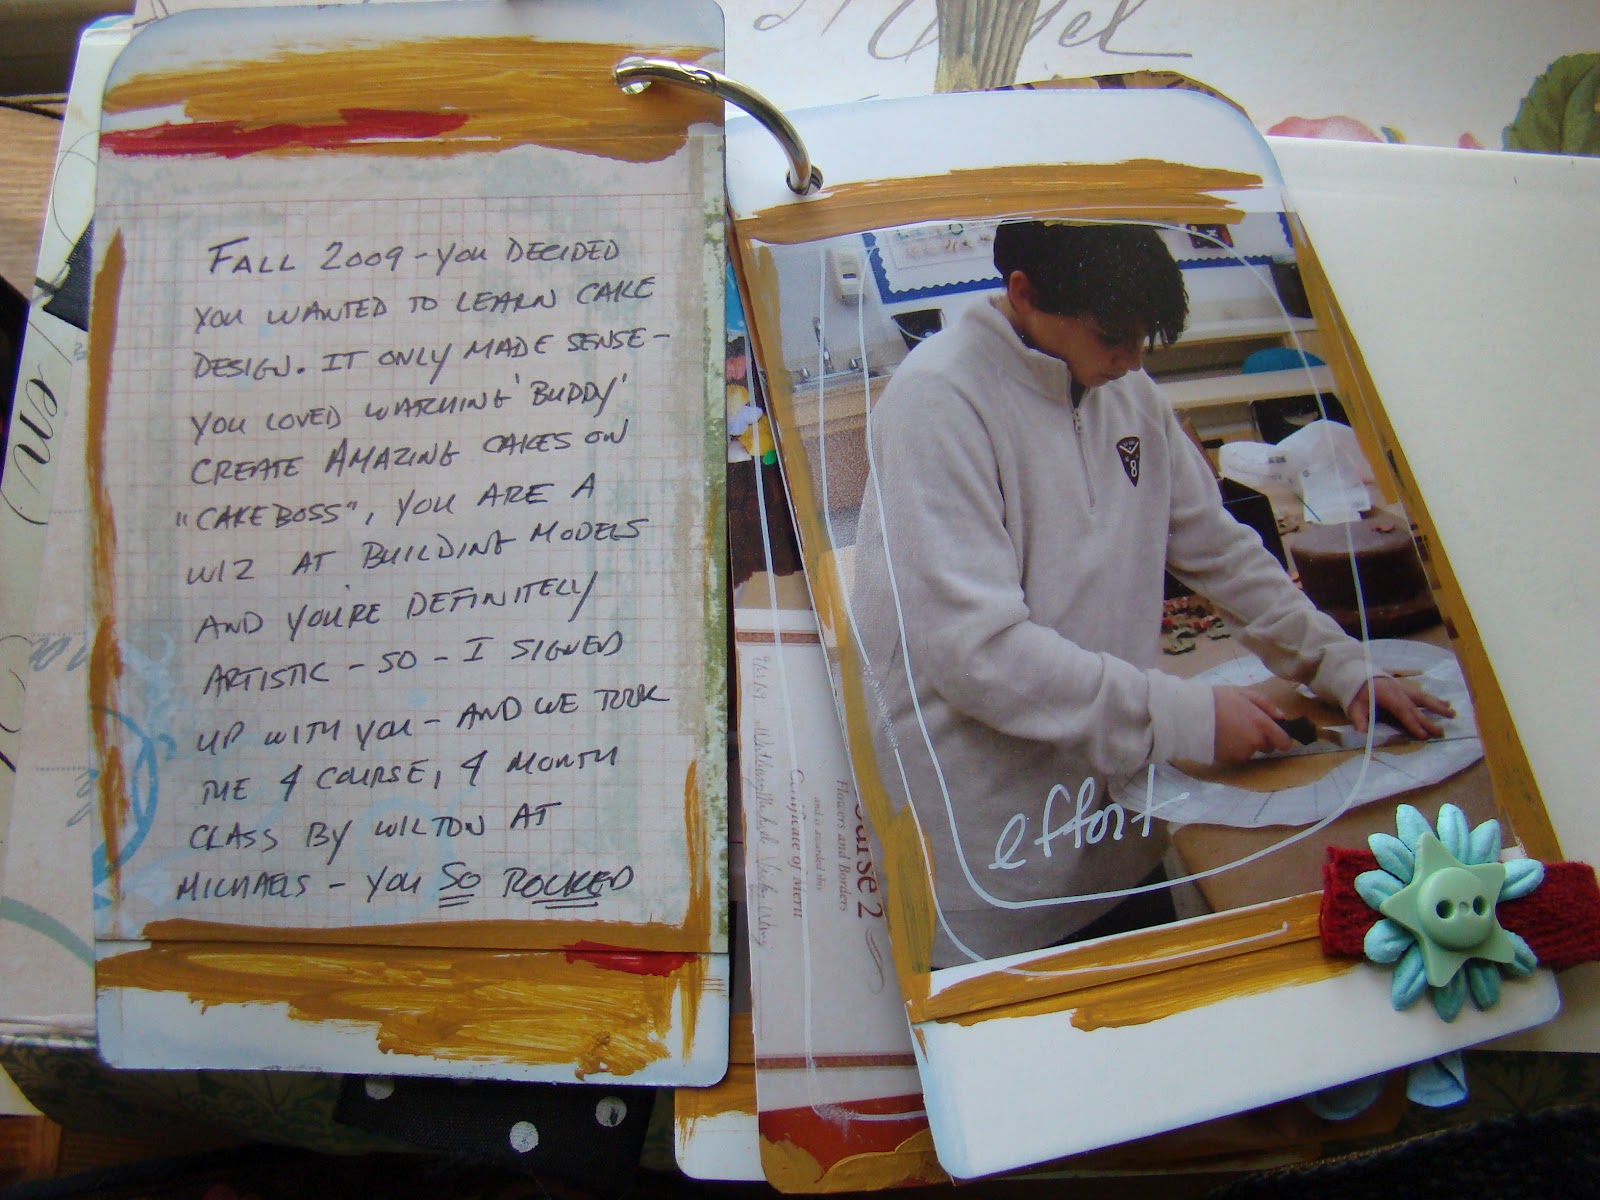 FALL 2009 - YOU DECIDED
YOU WANTED TO LEARN CAKE
DESIGN. IT ONLY MADE SENSE -
YOU LOVED WATCHING 'BUDDY'
CREATE AMAZING CAKES ON
"CAKEBOSS", YOU ARE A
WIZ AT BUILDING MODELS
AND YOU'RE DEFINITELY
ARTISTIC - SO - I SIGNED
UP WITH YOU - AND WE TOOK
THE 4 COURSE, 4 MONTH
CLASS BY WILTON AT
MICHAELS - YOU SO ROCKED
8
effort
Course 2
Flowers and Borders
and is awarded this
Certificate of Merit